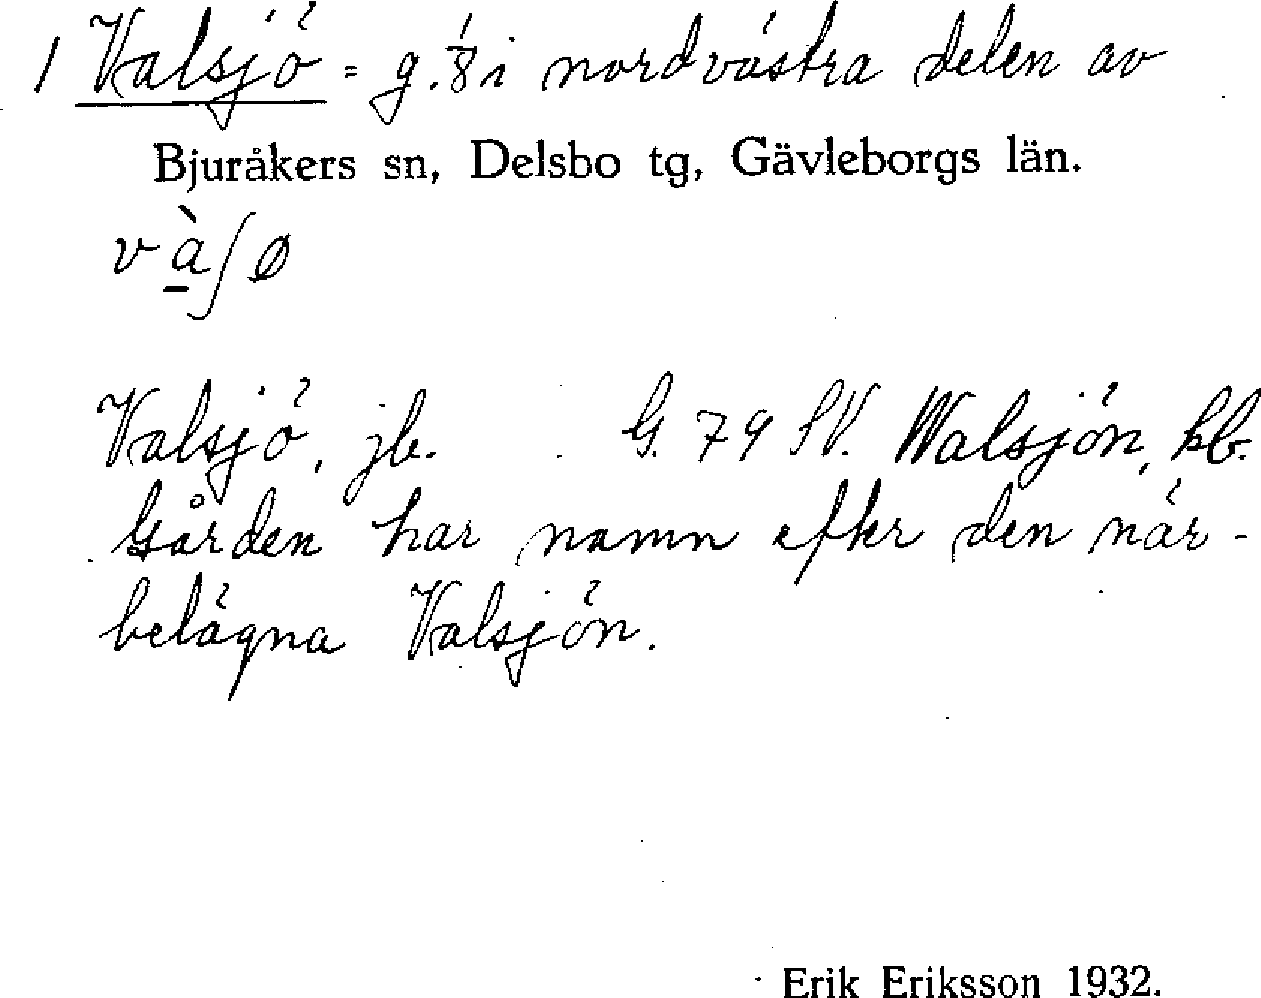 1 Valsjö = g. 1/8 i nordvästra delen av
Bjuråkers sn, Delsbo tg, Gävleborgs län.
v à̱ ʃ ø
Valsjö, jb. G. 79 SV. Walsjön, kb.
Gården har namn efter den när-
belägna Valsjön.
Erik Eriksson 1932.